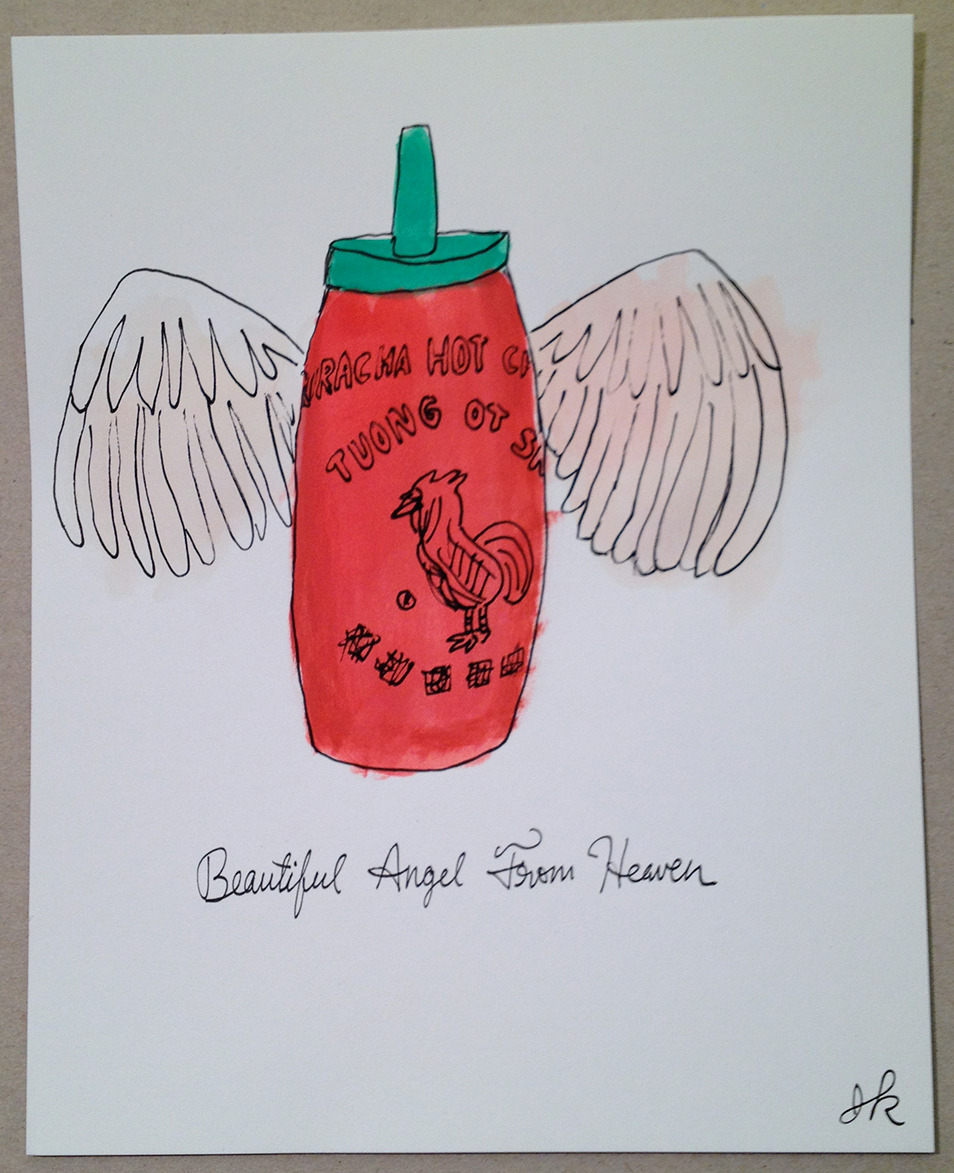 IRACHA HOT CH
TUONG OT SA
Beautiful Angel From Heaven